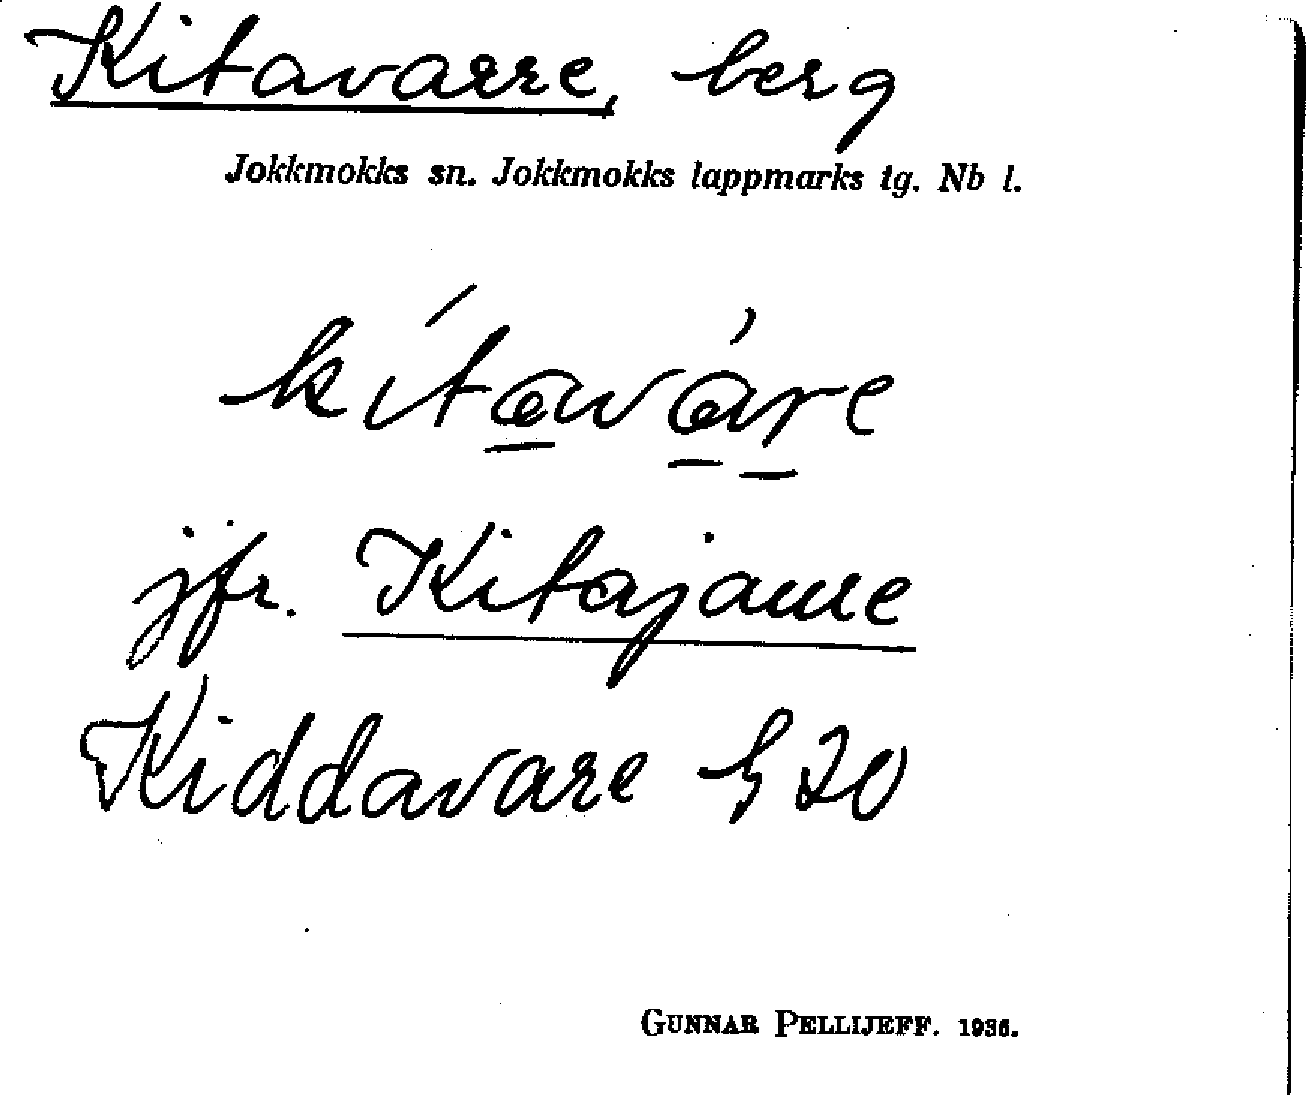 Kitavarre, berg
Jokkmokks sn. Jokkmokks lappmarks tg. Nb l.
kítaváre
jfr. Kitajaure
Kiddavare h 20
GUNNAR PELLIJEFF. 1936.